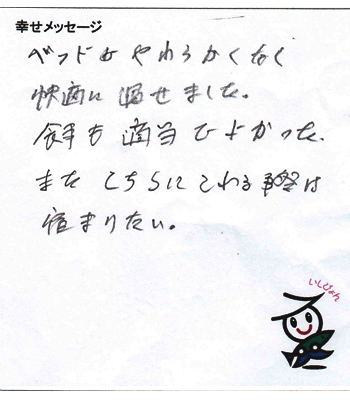 幸せメッセージ
ベッドもやわらかくなく
快適に過せました。
食事も適当でよかった。
またこちらにこれる際は
宿まりたい。
いしぴょん